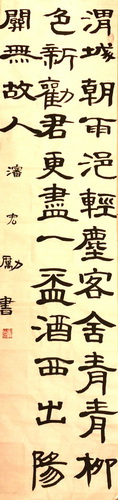 渭城朝雨浥輕塵客舍青青柳
色新勸君更盡一盃酒西出陽
關無故人 勵書